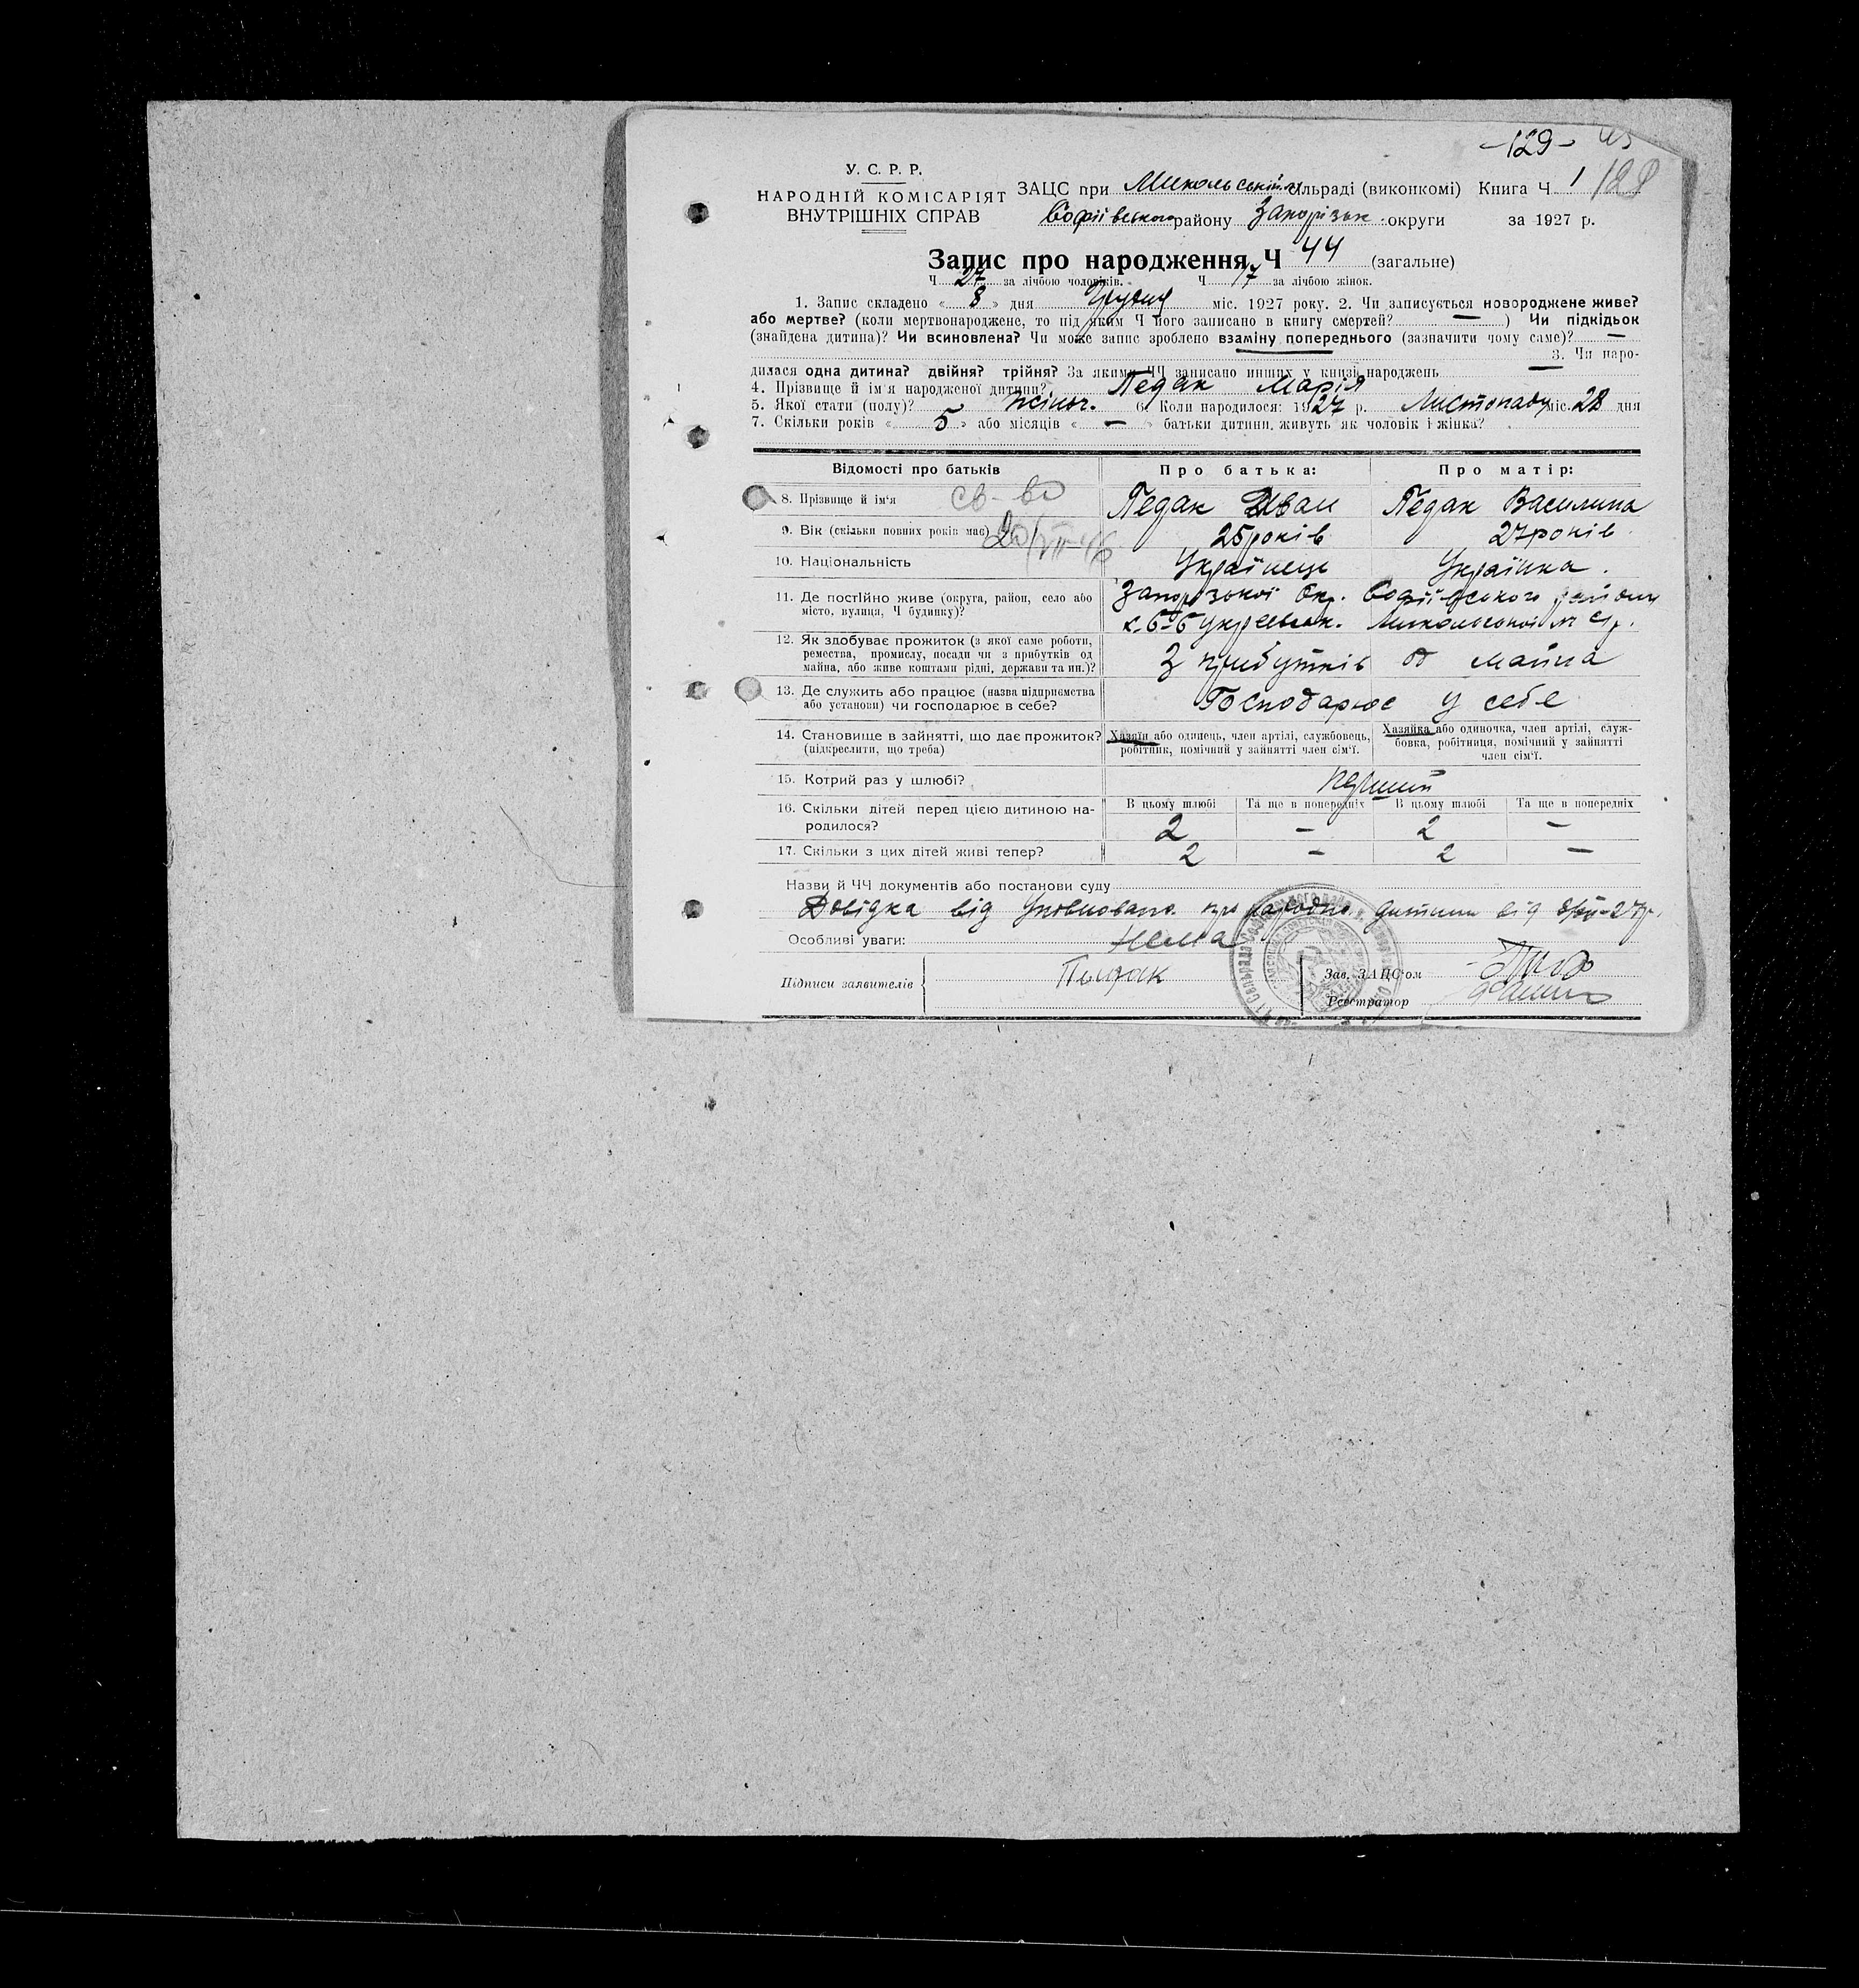 -129-
128
У. С. Р. Р.
НАРОДНІЙ КОМІСАРІЯТ
ВНУТРІШНІХ СПРАВ
ЗАЦС при Микольській сільраді (виконкомі) Книга Ч 1
Софіївського району Запорізьк. округи за 1927 р.
Запис про народження Ч 44 (загальне)
Ч 27 за лічбою чоловіків. Ч 17 за лічбою жінок.
1. Запис складено « 8 » дня Грудня міс. 1927 року. 2. Чи записується новороджене живе?
або мертве? (коли мертвонароджене, то під яким Ч його записано в книгу смертей? — ) Чи підкідьок
(знайдена дитина)? Чи всиновлена? Чи може запис зроблено взаміну попереднього (зазначити чому саме)? —
3. Чи наро-
дилася одна дитина? двійня? трійня? За якими ЧЧ записано инших у книзі народжень —
4. Прізвище й ім'я народженої дитини? Педак Марія
5. Якої стати (полу)? жіноч. 6. Коли народилося: 1927 р. Листопаду міс. 28 дня
7. Скільки років « 5 » або місяців « — » батьки дитини живуть як чоловік і жінка?
Відомості про батьків Про батька: Про матір:
8. Прізвище й ім'я св-во Педак Иван Педак Василина
9. Вік (скільки повних років має) 20/VII-46 25 років 27 років
10. Національність Українець Українка.
11. Де постійно живе (округа, район, село або
місто, вулиця, Ч будинку)?
Запорізької Окр. Софіївського району
Микольської
12. Як здобуває прожиток (з якої саме роботи,
ремества, промислу, посади чи з прибутків од
майна, або живе коштами рідні, держави та ин.)?
З прибутків од майна
13. Де служить або працює (назва підприємства
або установи) чи господарює в себе?
Господарює у себе
14. Становище в зайнятті, що дає прожиток?
(підкреслити, що треба)
Хазяїн або одинець, член артілі, службовець,
робітник, помічний у зайнятті член сім'ї.
Хазяйка або одиночка, член артілі, служ-
бовка, робітниця, помічний у зайнятті
член сім'ї.
15. Котрий раз у шлюбі? перший
16. Скільки дітей перед цією дитиною на-
родилося?
В цьому шлюбі Та ще в попередніх В цьому шлюбі Та ще в попередніх
2 — 2 —
17. Скільки з цих дітей живі тепер? 2 — 2 —
Назви й ЧЧ документів або постанови суду
Довідка від Уповноваж. про народж. дитини від 8/XII-27р.
Особливі уваги: Нема
Підписи заявителів
Зав. ЗАЦС'ом
Реєстратор